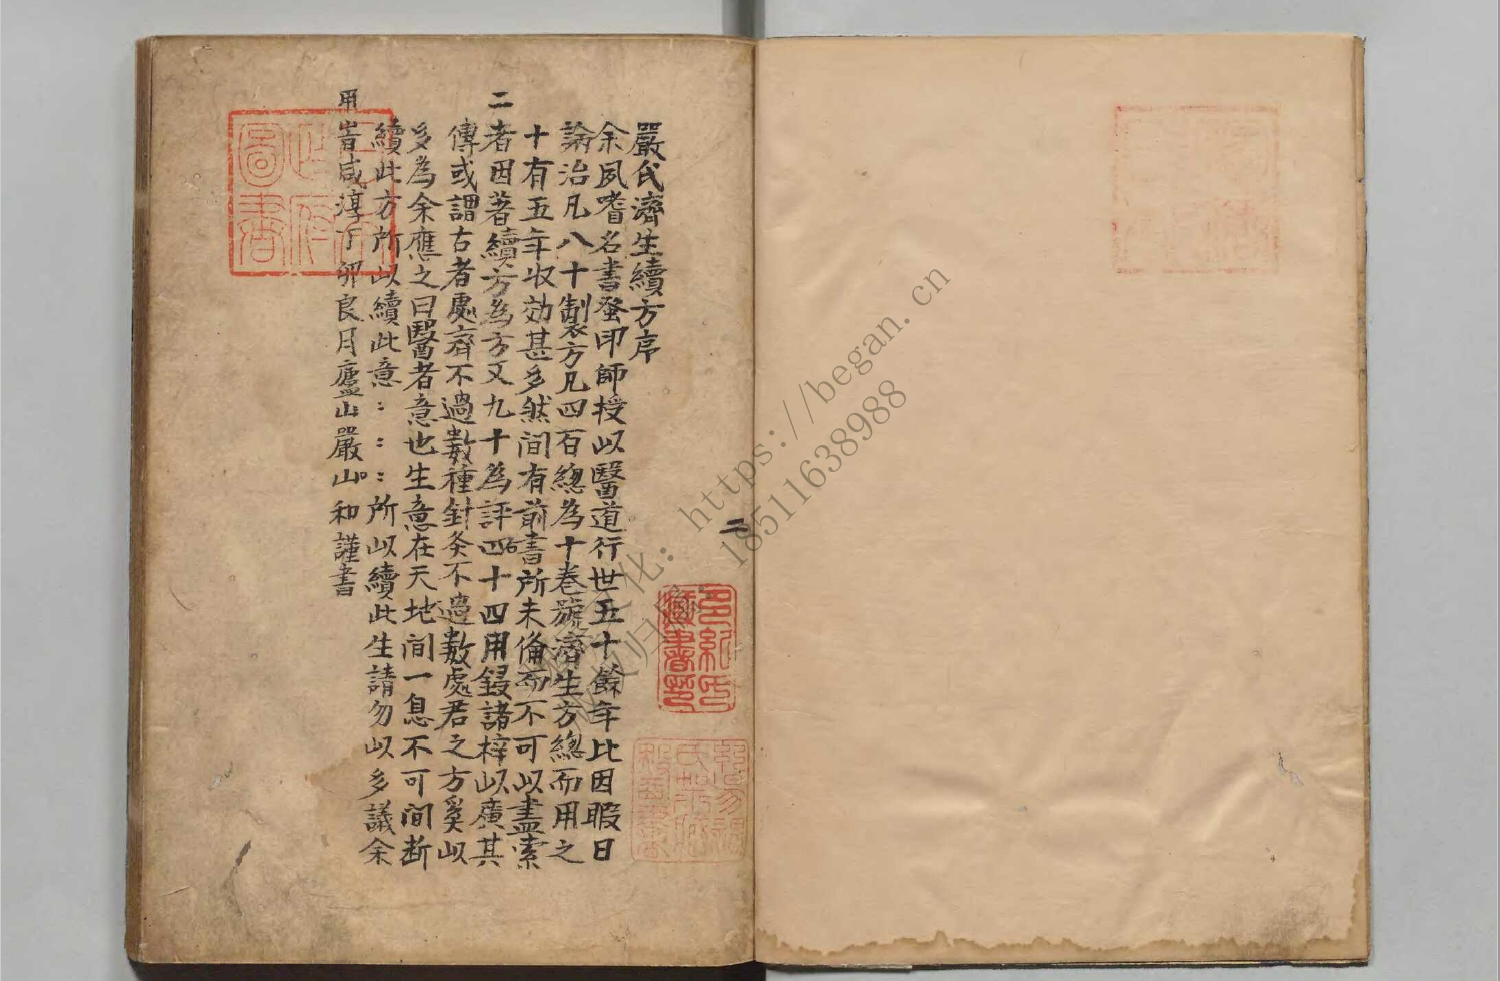 嚴氏濟生續方序
余夙嗜名書蚤印師授以醫道行世五十餘年比因暇日
論治凡八十製方凡四百總為十卷號濟生方總而用之
十有五年收効甚多然間有前書所未俻而不可以盡索
二
者因著續方為方又九十為評四十四用鋟諸梓以廣其
傳或謂古者處齊不過數種針灸不過數處君之方奚以
多為余應之曰醫者意也生意在天地間一息不可間斷
續此方所以續此意：：：所以續此生請勿以多議余
用
旹咸淳丁卯良月廬山嚴
和謹書
二
圖書
https://began.cn
18511638988